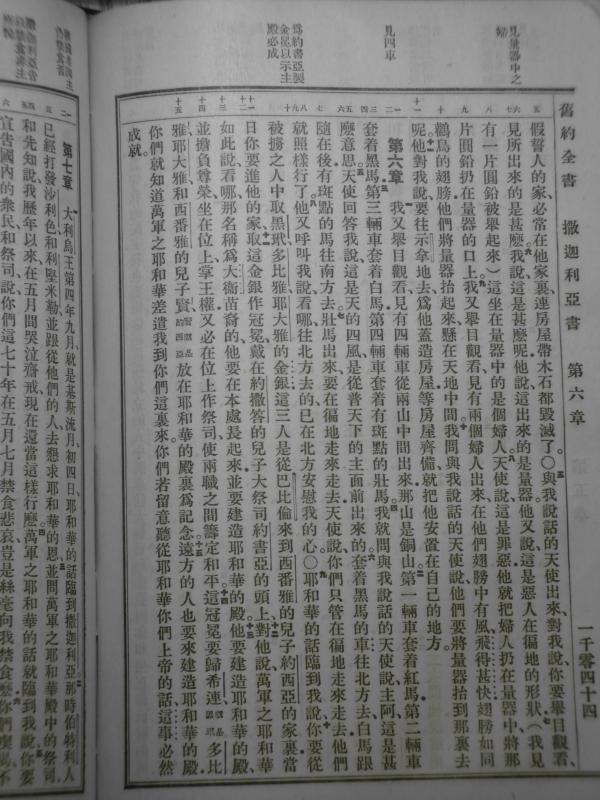 見量器中之婦
見四車
爲約書亞製
金冕以示主
殿必成
舊約全書 撒迦利亞書 第六章 一千零四十四
假誓人的家必常在他家裏連房屋帶木石都毀滅了○與我說話的天使出來對我說你要舉目觀看
見所出來的是甚麼我說這是甚麼呢他說這出來的是量器他又說這是惡人在徧地的形狀(我見
有一片圓鉛被舉起來)這坐在量器中的是個婦人天使說這是罪惡他就把婦人扔在量器中將那
片圓鉛扔在量器的口上我又舉目觀看見有兩個婦人出來在他們翅膀中有風飛得甚快翅膀如同
鸛鳥的翅膀他們將量器抬起來懸在天地中間我問與我說話的天使說他們要將量器抬到那裏去
呢他對我說要往示拿地去爲他蓋造房屋等房屋齊備就把他安置在自己的地方
第六章 我又舉目觀看見有四輛車從兩山中間出來那山是銅山第一輛車套着紅馬第二輛車
套着黑馬第三輛車套着白馬第四輛車套着有斑點的壯馬我就問與我說話的天使說主阿這是甚
麼意思天使回答我說這是天的四風是從普天下的主面前出來的套着黑馬的車往北方去白馬跟
隨在後有斑點的馬往南方去壯馬出來要在徧地走來走去天使說你們只管在徧地走來走去他們
就照樣行了他又呼叫我說看哪往北方去的已在北方安慰我的心○耶和華的話臨到我說你要從
被擄之人中取黑玳多比雅耶大雅的金銀這三人是從巴比倫來到西番雅的兒子約西亞的家裏當
日你要進他的家取這金銀作冠冕戴在約撒答的兒子大祭司約書亞的頭上對他說萬軍之耶和華
如此說看哪那名稱爲大衞苗裔的他要在本處長起來並要建造耶和華的殿他要建造耶和華的殿
並擔負尊榮坐在位上掌王權又必在位上作祭司使兩職之間籌定和平這冠冕要歸希連多比
雅耶大雅和西番雅的兒子賢放在耶和華的殿裏爲記念遠方的人也要來建造耶和華的殿
你們就知道萬軍之耶和華差遣我到你們這裏來你們若留意聽從耶和華你們上帝的話這事必然
成就
第七章 大利烏王第四年九月就是基斯流月初四日耶和華的話臨到撒迦利亞那時伯特利人
已經打發沙利色和利堅米勒並跟從他們的人去懇求耶和華的恩並問萬軍之耶和華殿中的祭司
和先知說我歷年以來在五月間哭泣齋戒現在還當這樣行麼萬軍之耶和華的話就臨到我說你要
宣告國內的衆民和祭司說你們這七十年在五月七月禁食悲哀豈是絲毫向我禁食麼你們喫喝不